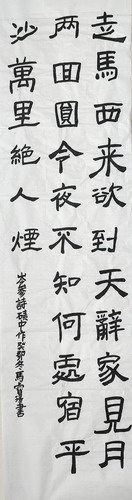 走馬西来欲到天辭家見月
两回圓今夜不知何處宿平
沙萬里絶人煙
岑參詩磧中作癸卯冬馬寳琦書